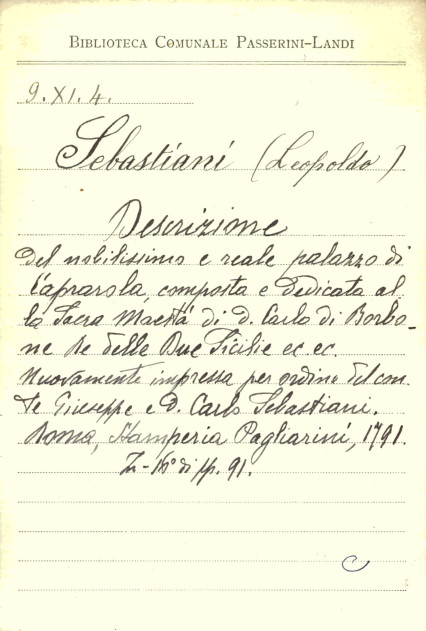 BIBLIOTECA COMUNALE PASSERINI-LANDI
9. XI. 4.
Sebastiani (Leopoldo)
Descrizione
del nobilissimo e reale palazzo di
Caprarola, composta e dedicata al
la Sacra Maestà di d. Carlo di Borbo-
ne Re delle Due Sicilie ec. ec.
Nuovamente impressa per ordine del con
te Giuseppe e d. Carlo Sebastiani.
Roma, Stamperia Pagliarini, 1791.
16° di pp. 91.
C